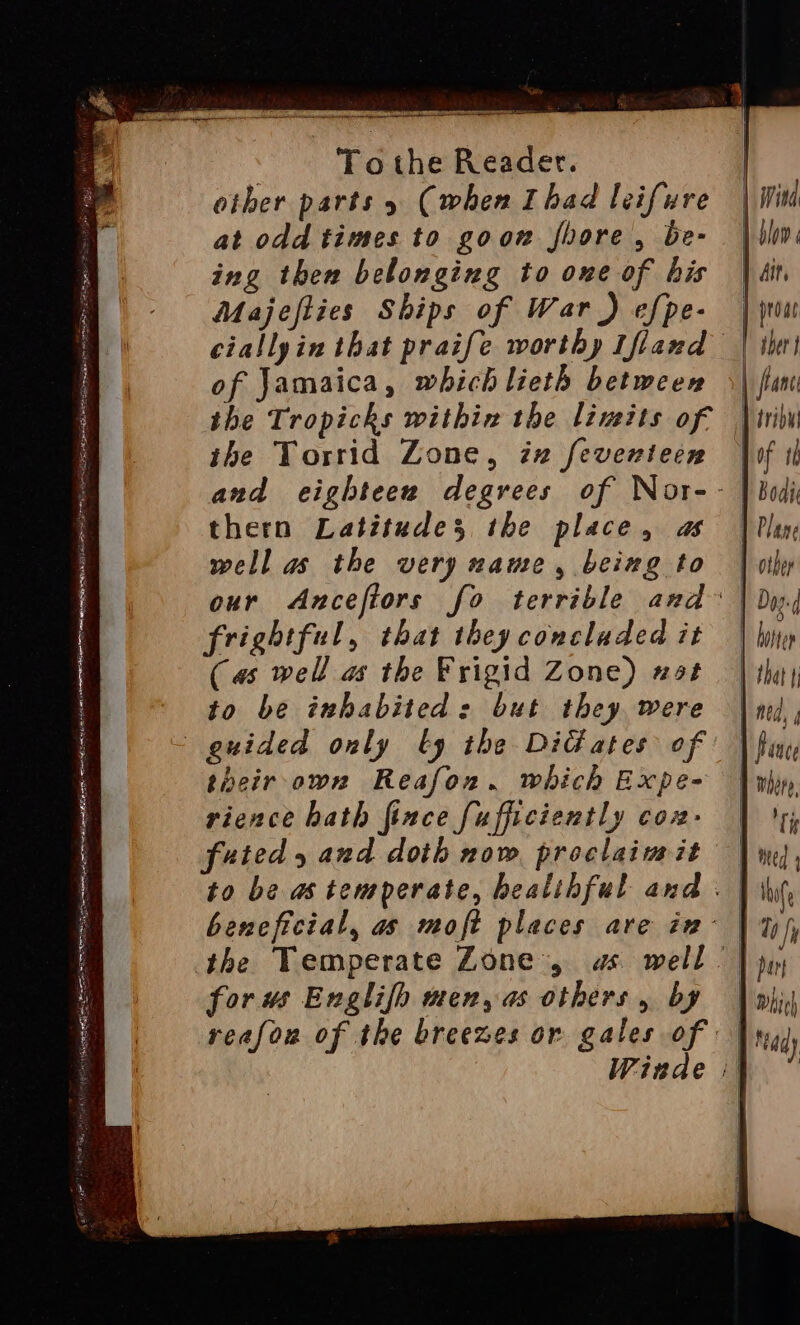 To the Reader.
other parts, (when I had leiſure
at odd times to go on ſhore, be-
ing then belonging to one of his
Majeſties Ships of War) eſpe-
cially in that praiſe worthy Iſland
of Jamaica, which lieth between
the Tropicks within the limits of
the Torrid Zone, in ſeventeen
and eighteen degrees of Nor-
thern Latitude; the place, as
well as the very name, being to
our Anceſtors ſo terrible and
frightful, that they concluded it
(as well as the Frigid Zone) not
to be inhabited: but they were
guided only by the Dictates of
their own Reaſon. which Expe-
rience hath ſince ſufficiently con-
futed, and doth now proclaim it
to be as temperate, healthful and
beneficial, as moſt places are in
the Temperate Zone, as well
for us Engliſh men, as others, by
reaſon of the breezes or gales of
Winde
Wind
blow
Air,
of th
Bodi
Plane
other
hotter
where,
part
which